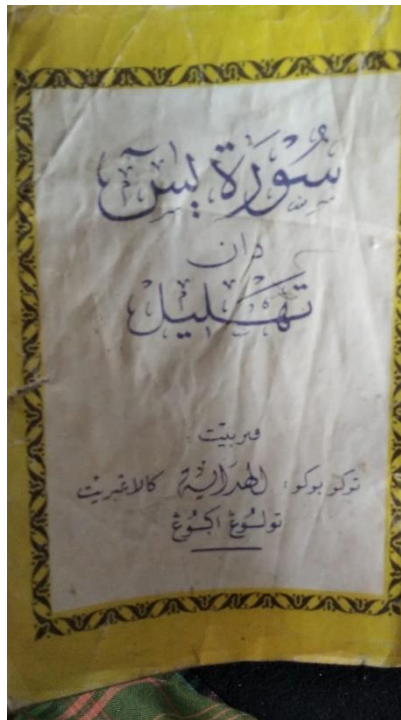 سُوْرَة يٰسٓ
دان
تَهْلِيل
ڤنربيت :
توكو بوكو: الهداية كالاڠبريت
تولوڠ اڬوڠ